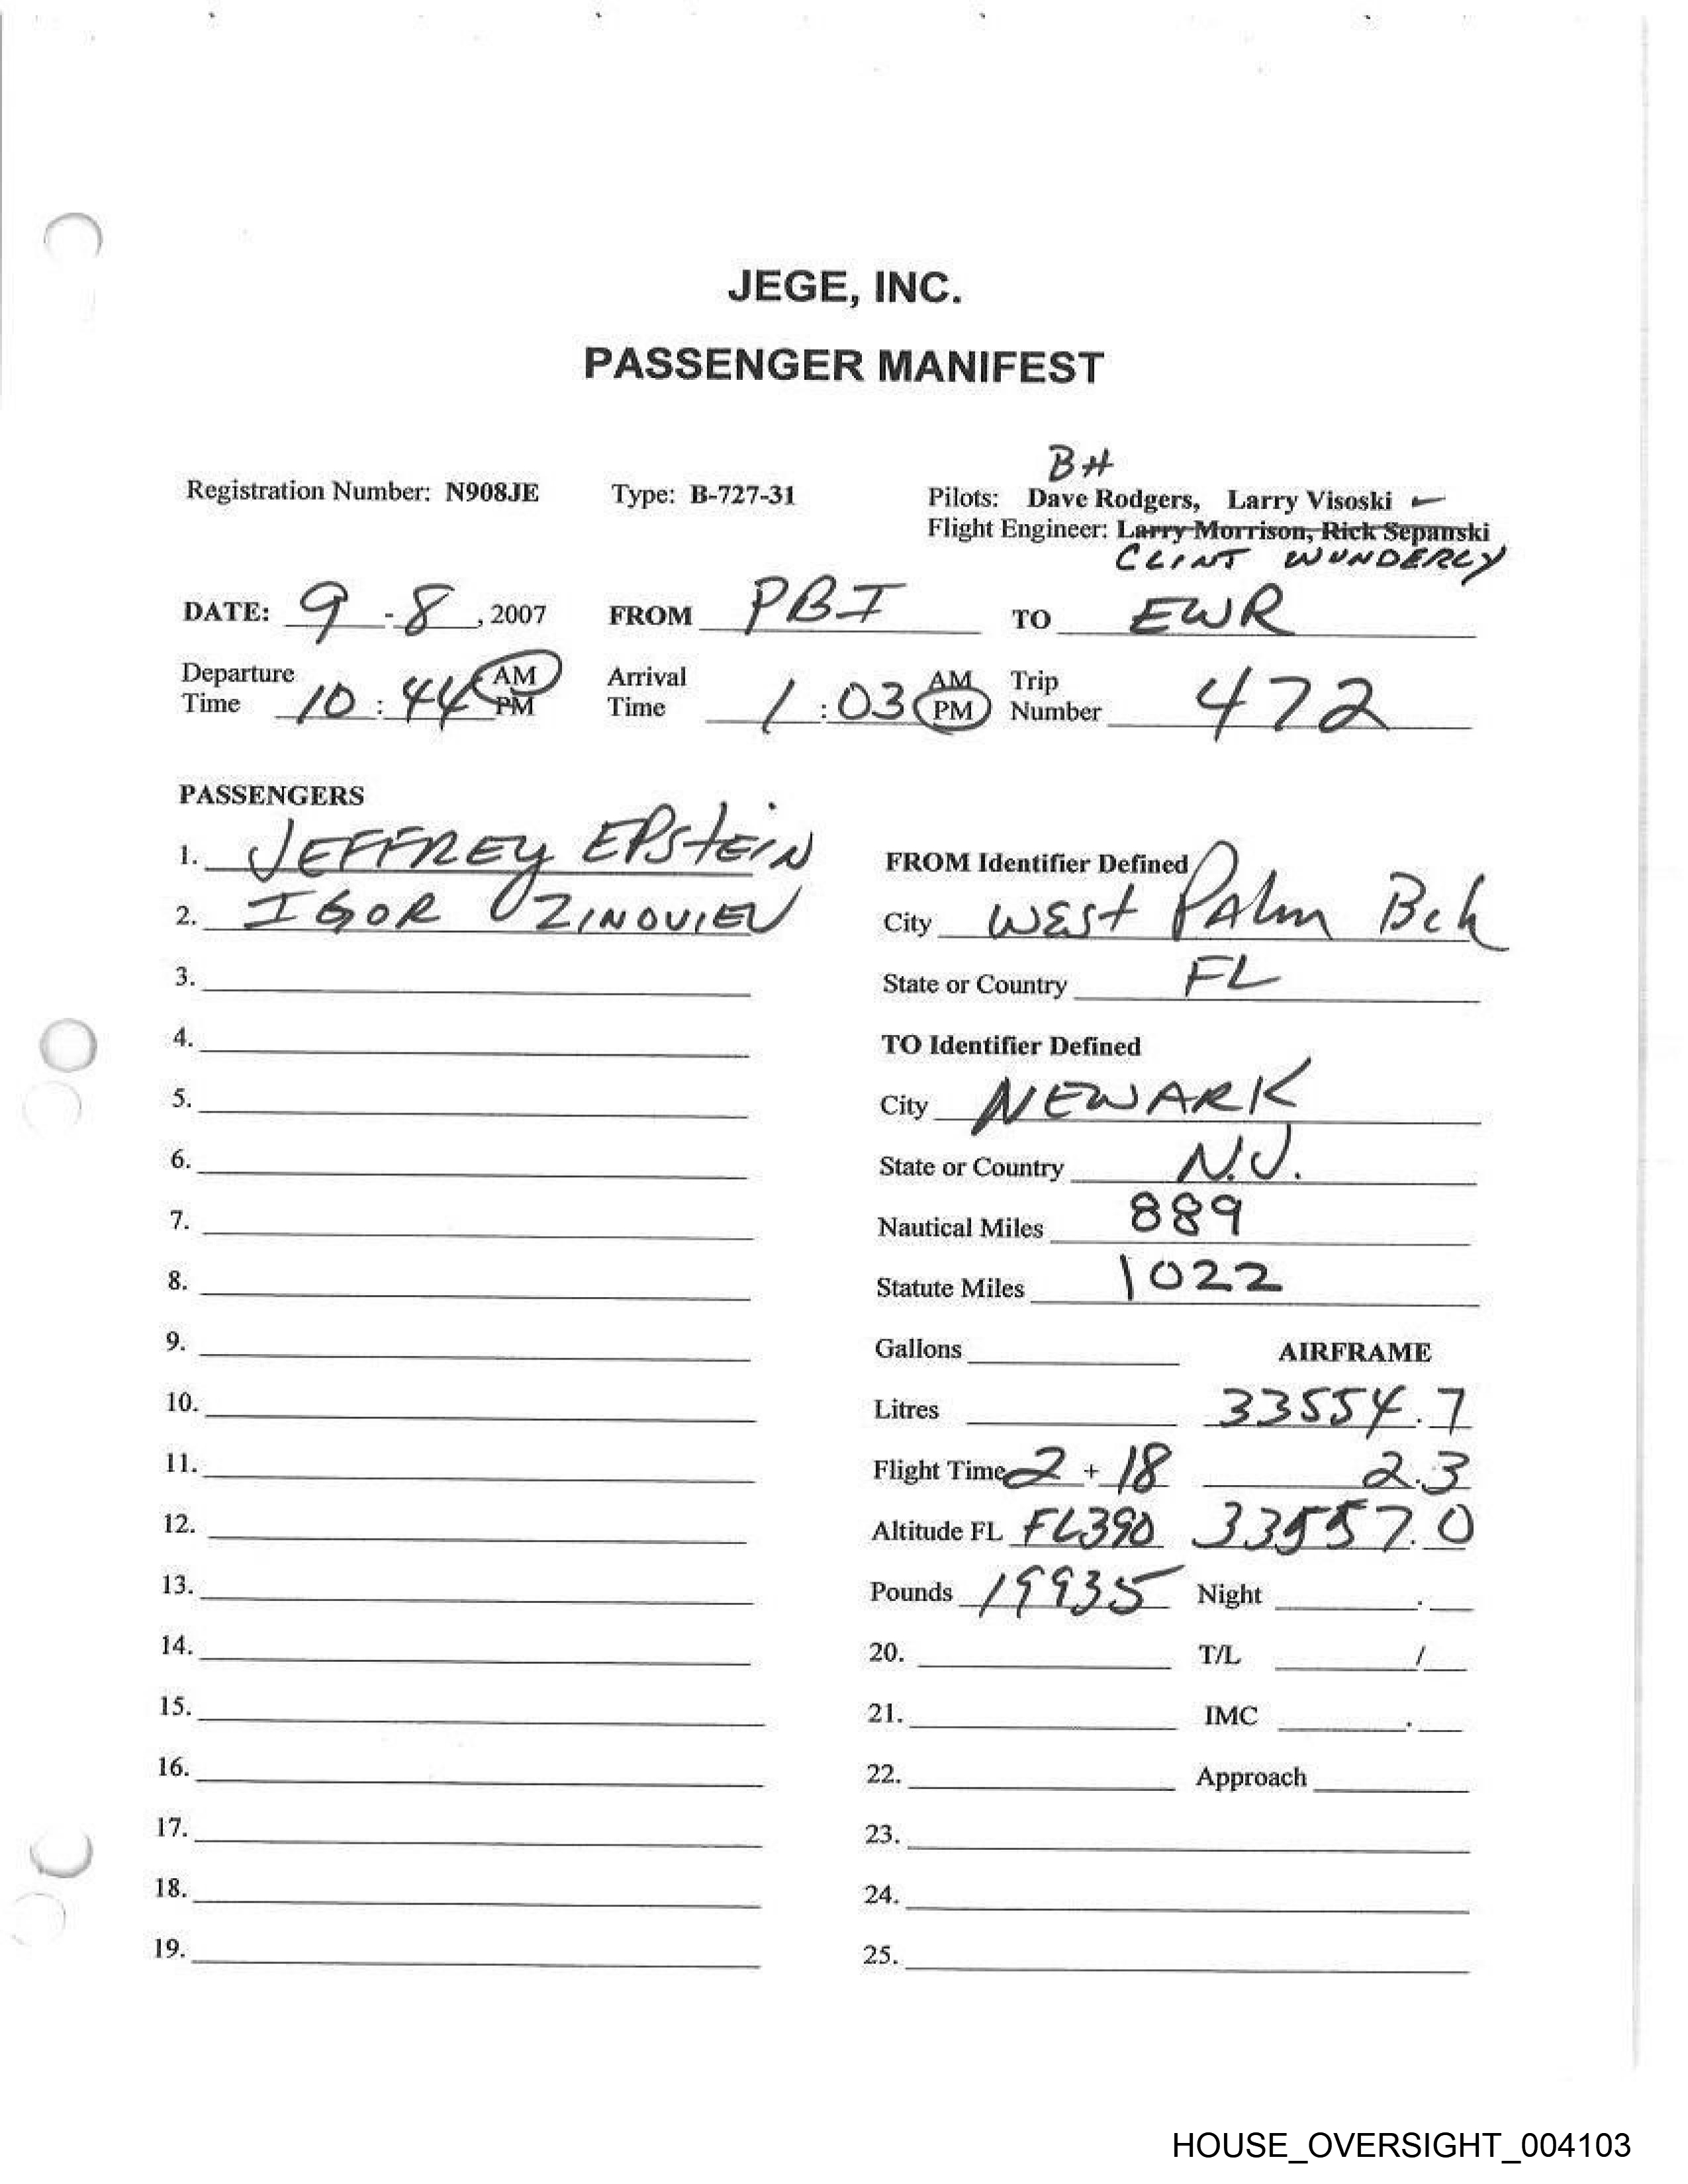 JEGE, INC.
PASSENGER MANIFEST
BH
Registration Number: N908JE Type: B-727-31 Pilots: Dave Rodgers, Larry Visoski
Flight Engineer: Larry Morrison, Rick Sepanski
CLINT WUNDERLY
DATE: 9 - 8, 2007 FROM PBI TO EWR
Departure Time 10:44 AM PM Arrival Time 1:03 AM PM Trip Number 472
PASSENGERS
1. JEFFREY EPSTEIN
FROM Identifier Defined
2. IGOR ZINOVIEV
City WEST PALM Bch
3.
State or Country FL
4.
TO Identifier Defined
5.
City NEWARK
6.
State or Country N.J.
7.
Nautical Miles 889
8.
Statute Miles 1022
9.
Gallons AIRFRAME
10.
Litres 33554.7
11.
Flight Time 2 + 18 2.3
12.
Altitude FL FL390 33557.0
13.
Pounds 19935 Night .
14.
20. T/L /
15.
21. IMC .
16.
22. Approach
17.
23.
18.
24.
19.
25.
HOUSE_OVERSIGHT_004103